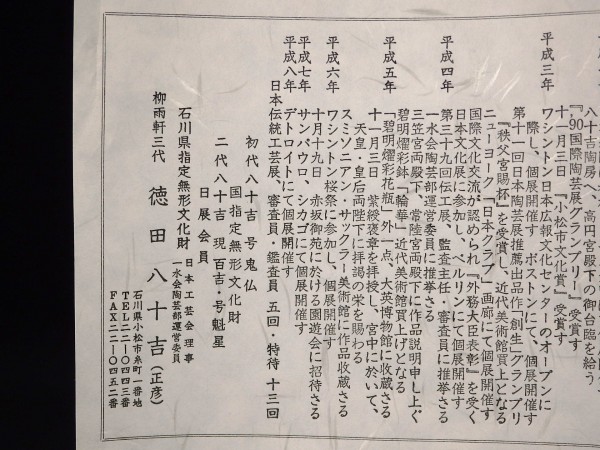 八十吉陶房へ、高円宮殿下の御台臨を給う
『'90国際陶芸展グランプリ』受賞す
十一月三日『小松市文化賞』受賞す
平成三年
ワシントン日本広報文化センターのオープンに
際し、個展開催す ボストンにて、個展開催す
第十一回日本陶芸展推薦出品作「創生」グランプリ
『秩父宮賜杯』を受賞し、近代美術館買上となる
ニューヨーク「日本クラブ」画廊にて個展開催す
国際文化交流が認められ『外務大臣表彰』を受く
平成四年
日本文化展に参加し、ベルリンにて個展開催す
第三十九回伝工展、監査主任・審査員に推挙さる
一水会陶芸部運営委員に推挙さる
三笠宮両殿下、常陸宮両殿下に作品説明申し上ぐ
平成五年
碧明燿彩鉢「輪華」近代美術館買上げとなる
「碧明燿彩花瓶」外一点、大英博物館に収蔵さる
十一月三日 紫綬褒章を拝授し、宮中に於いて、
天皇・皇后両陛下に拝謁の栄を賜わる
平成六年
スミソニアン・サックラー美術館に作品収蔵さる
ワシントン桜祭に参加し、個展開催す
十月十九日 赤坂御苑に於ける園遊会に招待さる
平成七年
サンパウロ、シカゴにて個展開催す
平成八年
デトロイトにて個展開催す
日本伝統工芸展、審査員・鑑査員 五回・特待 十三回
初代八十吉 号鬼仏
国指定無形文化財
二代八十吉 現百吉・号魁星
日展会員
石川県指定無形文化財
日本工芸会理事
一水会陶芸部運営委員
柳雨軒三代 徳田八十吉(正彦)
石川県小松市糸町一番地
TEL二二―〇四四三番
FAX二二―〇四五二番